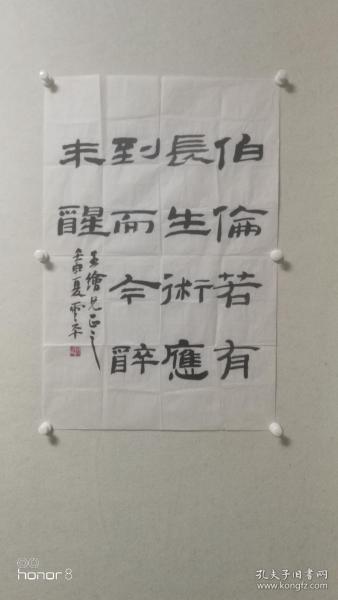 伯倫若有
長生術應
到而今醉
未醒
玉繪兄正之
壬申夏雲平
honor 8
孔夫子旧书网
www.kongfz.com